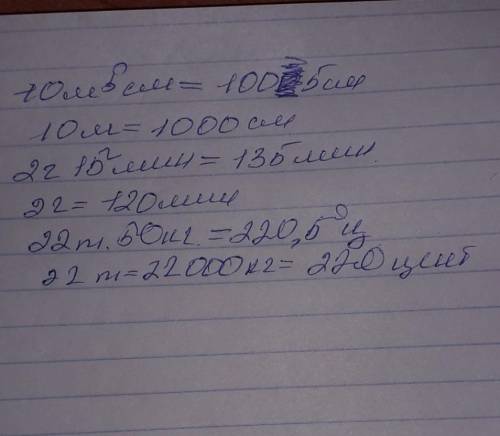 10м 5 см = 1005 см
10м = 1000 см
2г 15 мин = 135 мин.
2г = 120 мин
22 т. 50 кг. = 220,5 ц
22 т = 22000 кг = 220 цент